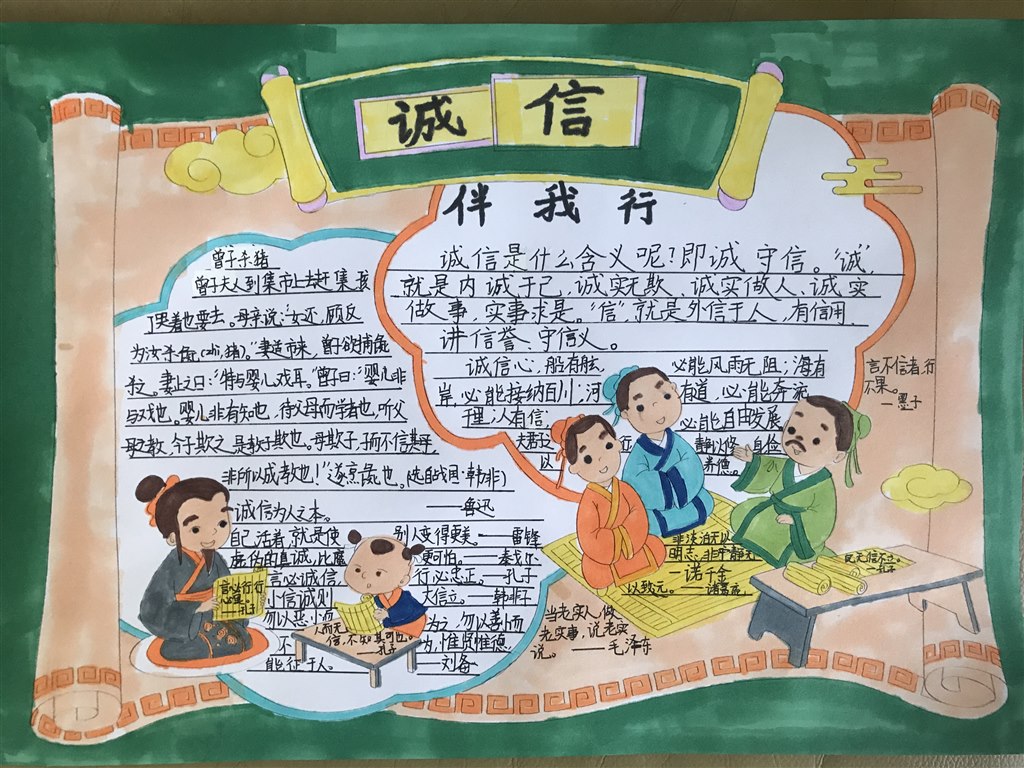 诚信
伴我行
诚信是什么含义呢?即诚 守信。“诚”,
就是内诚于己,诚实无欺、诚实做人、诚实
做事,实事求是。“信”,就是外信于人,有信用、
讲信誉、守信义。
诚信心,船有舷 必能风雨无阻;海有
岸,必能接纳百川;河 有道,必能奔流
理;人有信; 必能自由发展
夫君子 静以修 自俭
以 养德。
非淡泊无以
明志,非宁静无
一诺千金
以致元。——诸葛亮
曾子杀猪
曾子夫人到集市上去赶集,孩
哭着也要去。母亲说:“女还,顾反
为汝杀 (zhì,猪)。”妻适市来,曾子欲捕彘
杀之。妻止之曰:“特与婴儿戏耳。”曾子曰:“婴儿非
与戏也。婴儿非有知也,待父母而学者也,听父
母之教。今子欺之,是教子欺也。母欺子,子而不信其母,
非所以成教也!”遂烹彘也。(选自战国·韩非)
诚信为人之本。 ——鲁迅
自己活着,就是使 别人变得更美。——雷锋
虚伪的真诚,比魔 更可怕。——泰戈尔
言必诚信, 行必忠正。——孔子
小信诚则 大信立。——韩非子
勿以恶小而 为之,勿以善小而
不 为,惟贤惟德,
能征于人。 ——刘备
言必行行
必果
——孔子
人而无
信,不知其可也。
——孔子
当老实人,做
老实事,说老实
说。——毛泽东
民无信不立。
——孔子
言不信者,行
不果。
——墨子